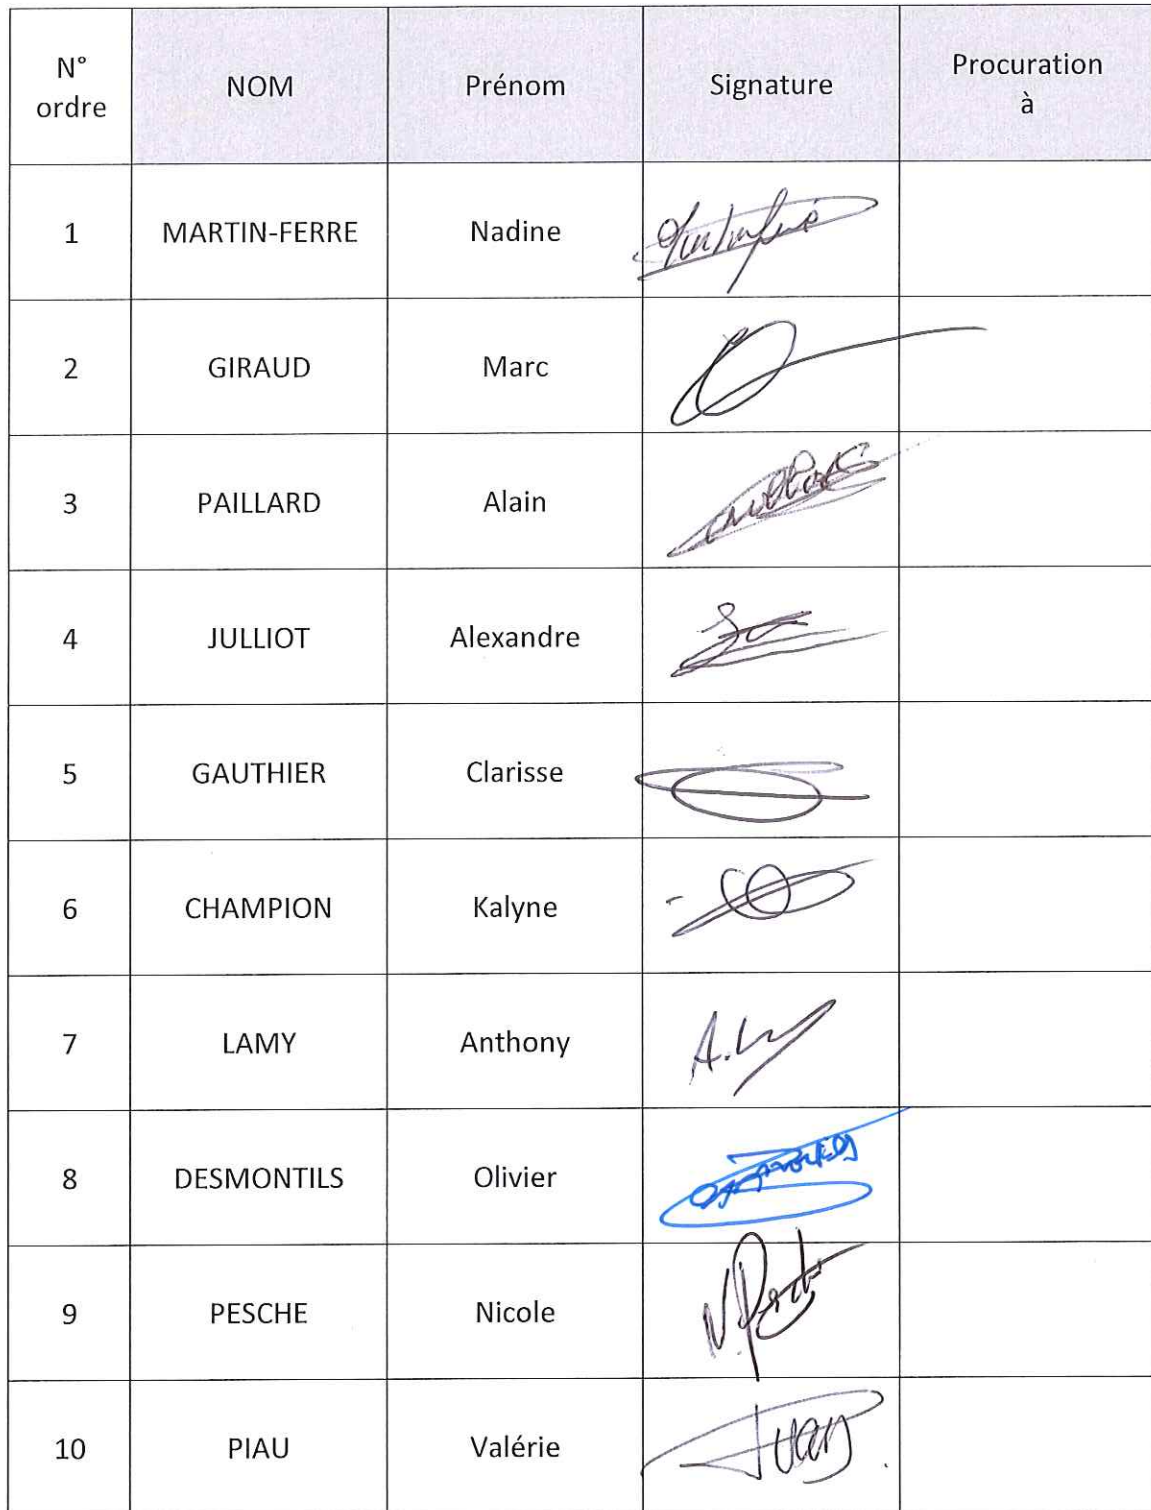 N° ordre NOM Prénom Signature Procuration à
1 MARTIN-FERRE Nadine
2 GIRAUD Marc
3 PAILLARD Alain
4 JULLIOT Alexandre
5 GAUTHIER Clarisse
6 CHAMPION Kalyne
7 LAMY Anthony
8 DESMONTILS Olivier
9 PESCHE Nicole
10 PIAU Valérie